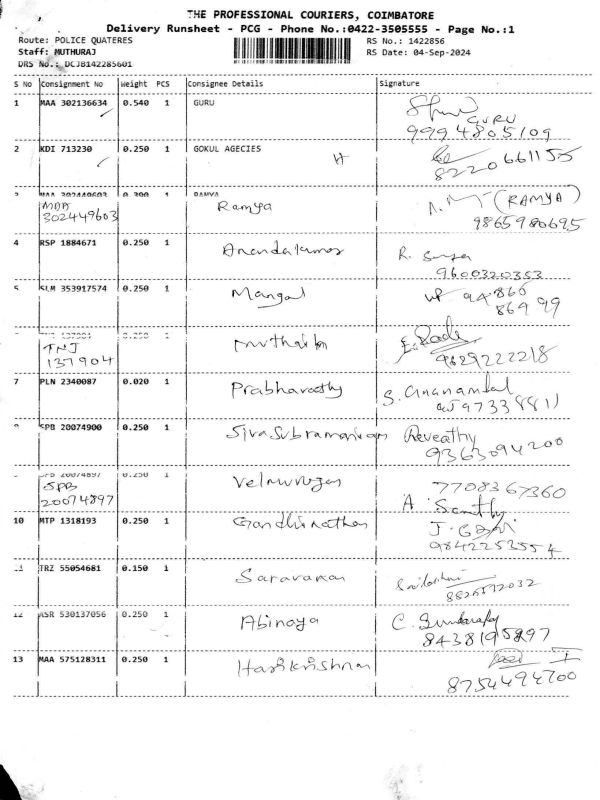 THE PROFESSIONAL COURIERS, COIMBATORE
Delivery Runsheet - PCG - Phone No.:0422-3505555 - Page No.:1
Route: POLICE QUATERES RS No.: 1422856
Staff: MUTHURAJ RS Date: 04-Sep-2024
DRS No.: DCJB142285601
S No Consignment No Weight PCS Consignee Details Signature
1 MAA 302136634 0.540 1 GURU
GURU
9994805109
2 KDI 713230 0.250 1 GOKUL AGECIES
8220661155
3 MAA 302449603 0.300 1 RAMYA
MAA
302449603 Ramya (RAMYA)
9865980695
4 RSP 1884671 0.250 1 Anandakumar R. Surya
9600320353
5 SLM 353917574 0.250 1 Mangal
94 866
869 99
TNJ 137904 0.250 1
TNJ
137904 9629222218
7 PLN 2340087 0.020 1 Prabhavathy S. Gnanambal
9733 8811
8 SPB 20074900 0.250 1 Sivasubramaniyam Reveathy
9363094200
SPB 20074897 0.250 1 Velmurugan
SPB
20074897 7708367360
A Santhy
10 MTP 1318193 0.250 1 Gandhinathan
9842253554
11 TRZ 55054681 0.150 1 Saravanan
8826592032
12 ASR 530137056 0.250 1 Abinaya C. Sundararaj
8438195897
13 MAA 575128311 0.250 1 Harikrishnan
8754494700